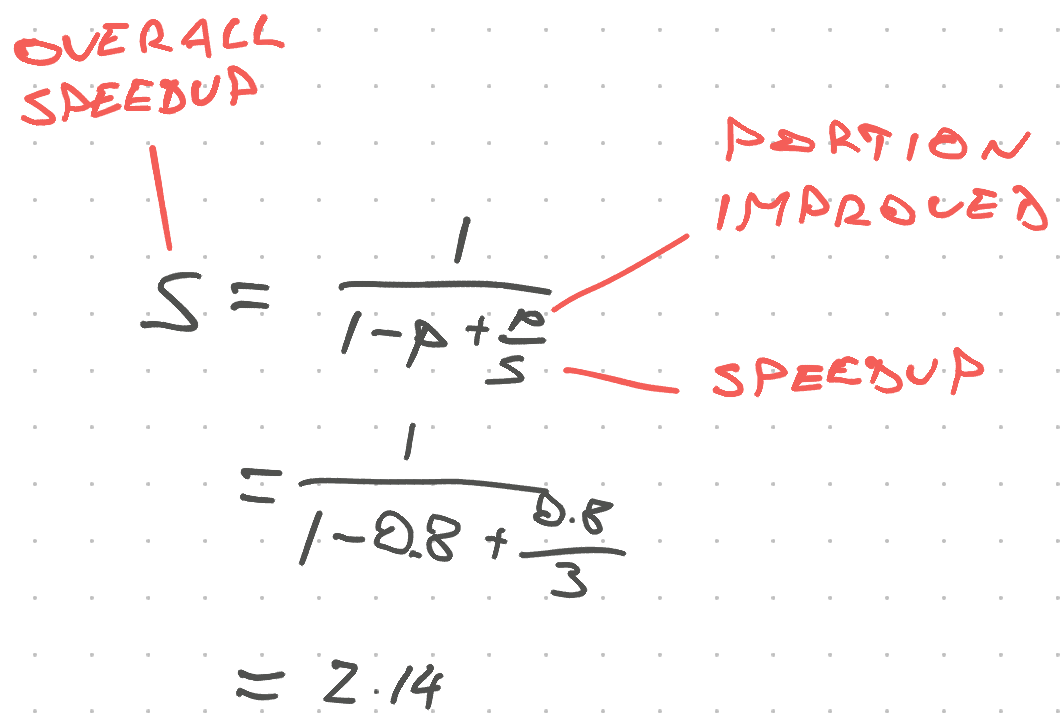 OVERALL
SPEEDUP
PORTION
IMPROVED
S = 1 / (1 - p + p/s)
SPEEDUP
= 1 / (1 - 0.8 + 0.8/3)
= 2.14